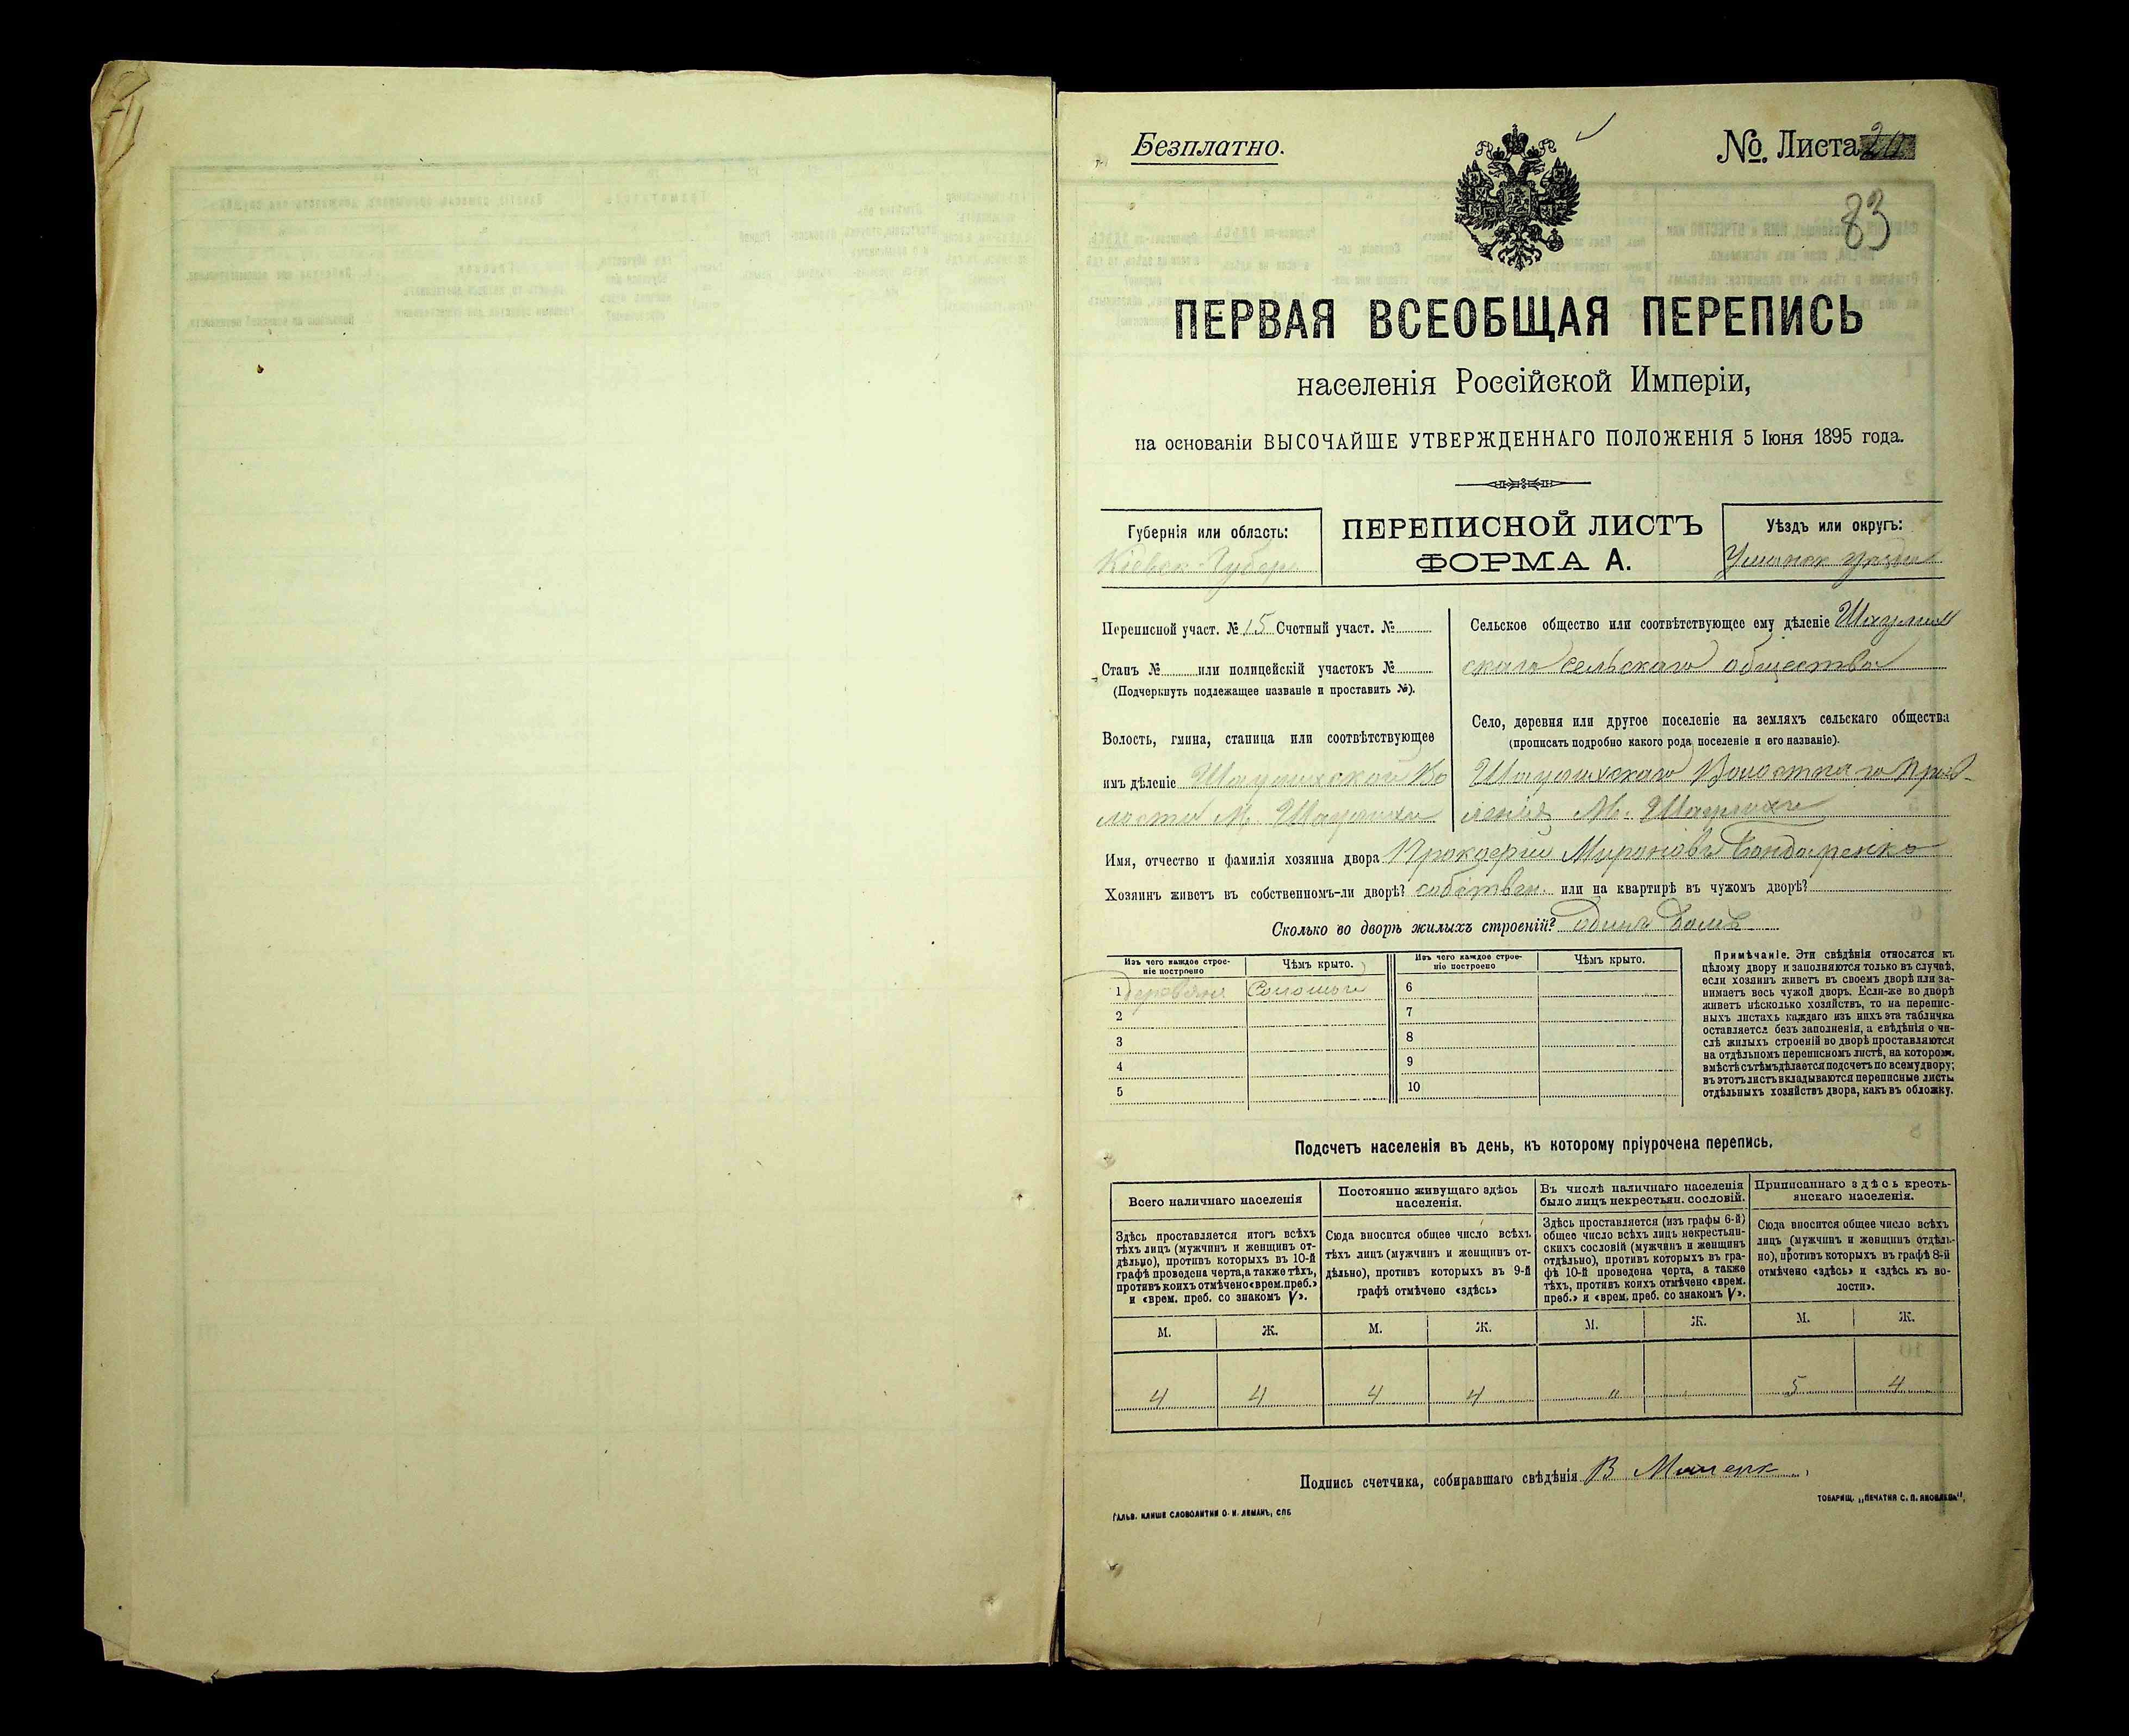 Безплатно.
№. Листа 20
83
ПЕРВАЯ ВСЕОБЩАЯ ПЕРЕПИСЬ
населенія Россійской Имперіи,
на основаніи ВЫСОЧАЙШЕ УТВЕРЖДЕННАГО ПОЛОЖЕНІЯ 5 Іюня 1895 года.
Губернія или область:
Кіевск. Губерн
ПЕРЕПИСНОЙ ЛИСТЪ
ФОРМА А.
Уѣздъ или округъ:
Уманск уѣзда
Переписной участ. № 15 Счетный участ. №
Станъ № или полицейскій участокъ №
(Подчеркнуть подлежащее названіе и проставить №).
Волость, гмина, станица или соотвѣтствующее
имъ дѣленіе Шаулихской Во
лости М. Шаулихи
Сельское общество или соотвѣтствующее ему дѣленіе Шаулих
скаго сельскаго общества
Село, деревня или другое поселеніе на земляхъ сельскаго общества
(прописать подробно какого рода поселеніе и его названіе).
Шаулихскаго Волостнаго Прав-
ленія М. Шаулихи
Имя, отчество и фамилія хозяина двора Прокофій Мироновъ Бондаренко
Хозяинъ живетъ въ собственномъ-ли дворѣ? собствен. или на квартирѣ въ чужомъ дворѣ?
Сколько во дворѣ жилыхъ строеній? один домъ
Изъ чего каждое строе-
ніе построено
Чѣмъ крыто.
Изъ чего каждое строе-
ніе построено
Чѣмъ крыто.
1 деревян. Соломою 6
2 7
3 8
4 9
5 10
Примѣчаніе. Эти свѣдѣнія относятся къ
цѣлому двору и заполняются только въ случаѣ,
если хозяинъ живетъ въ своемъ дворѣ или за-
нимаетъ весь чужой дворъ. Если-же во дворѣ
живетъ нѣсколько хозяйствъ, то на перепис-
ныхъ листахъ каждаго изъ нихъ эта табличка
оставляется безъ заполненія, а свѣдѣнія о чи-
слѣ жилыхъ строеній во дворѣ проставляются
на отдѣльномъ переписномъ листѣ, на которомъ
вмѣстѣ съ тѣмъ дѣлается подсчетъ по всему двору;
въ этотъ листъ вкладываются переписные листы
отдѣльныхъ хозяйствъ двора, какъ въ обложку.
Подсчетъ населенія въ день, къ которому пріурочена перепись.
Всего наличнаго населенія
Постоянно живущаго здѣсь
населенія.
Въ числѣ наличнаго населенія
было лицъ некрестьян. сословій.
Приписаннаго здѣсь кресть-
янскаго населенія.
Здѣсь проставляется итогъ всѣхъ
тѣхъ лицъ (мужчинъ и женщинъ от-
дѣльно), противъ которыхъ въ 10-й
графѣ проведена черта, а также тѣхъ,
противъ коихъ отмѣчено «врем. преб.»
и «врем. преб. со знакомъ V».
Сюда вносится общее число всѣхъ
тѣхъ лицъ (мужчинъ и женщинъ от-
дѣльно), противъ которыхъ въ 9-й
графѣ отмѣчено «здѣсь»
Здѣсь проставляется (изъ графы 6-й)
общее число всѣхъ лицъ некрестьян-
скихъ сословій (мужчинъ и женщинъ
отдѣльно), противъ которыхъ въ гра-
фѣ 10-й проведена черта, а также
тѣхъ, противъ коихъ отмѣчено «врем.
преб.» и «врем. преб. со знакомъ V».
Сюда вносится общее число всѣхъ
лицъ (мужчинъ и женщинъ отдѣль-
но), противъ которыхъ въ графѣ 8-й
отмѣчено «здѣсь» и «здѣсь къ во-
лости».
М. Ж. М. Ж. М. Ж. М. Ж.
4 4 4 4 " 5 4
Подпись счетчика, собиравшаго свѣдѣнія В
ГАЛЬВ. КЛИШЕ СЛОВОЛИТНИ О. И. ЛЕМАНЪ, СПБ
ТОВАРИЩ. „ПЕЧАТНЯ С. П. ЯКОВЛЕВА",